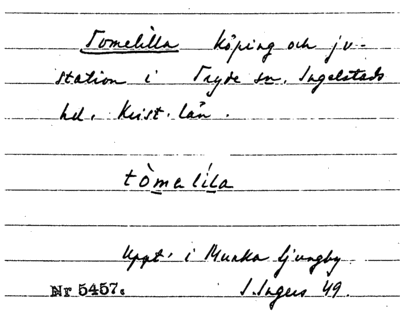 Tomelilla Köping och jv-
station i Tryde sn. Ingelstads
hd. Krist. län.
tòmelíla
Uppt. i Munka Ljungby
Nr 5457. I. Ingers 49.